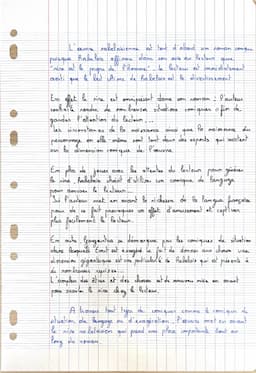 L'œuvre rabelaisienne est tout d'abord un roman comique
puisque Rabelais affirme dans son avis au lecteur que
"rire est le propre de l'homme". Le lecteur est immédiatement
averti que le but ultime de Rabelais est le divertissement
En effet le rire est omniprésent dans son roman : l'auteur
de nombreuses situations comiques afin de
garder l'attention du lecteur...
Les circonstances de la naissance ainsi que la naissance du
personnage en elle même sont tout deux des aspects qui
sur la dimension comique de l'œuvre.
En plus de jouer avec les attentes du lecteur pour générer
le rire, Rabelais choisit d'utiliser un comique de langage
pour amuser le lecteur...
Ici l'auteur met en avant la richesse de la langue française
pour de ce fait provoquer un effet d'amusement et captiver
plus facilement le lecteur.
En outre, Gargantua se démarque par les comiques de situation
dans lesquels est exagéré le fait de donner aux choses une
dimension gigantesque est une particularité de Rabelais qui est présente à
de nombreuses reprises...
L' des êtres et des choses est de nouveau mise en avant
pour susciter le rire chez le lecteur.
A travers tout type de comiques comme le comique de
situation, de langage ou d'exagération, l'œuvre met en avant
le rire rabelaisien qui prend une place importante tout au
long du roman.